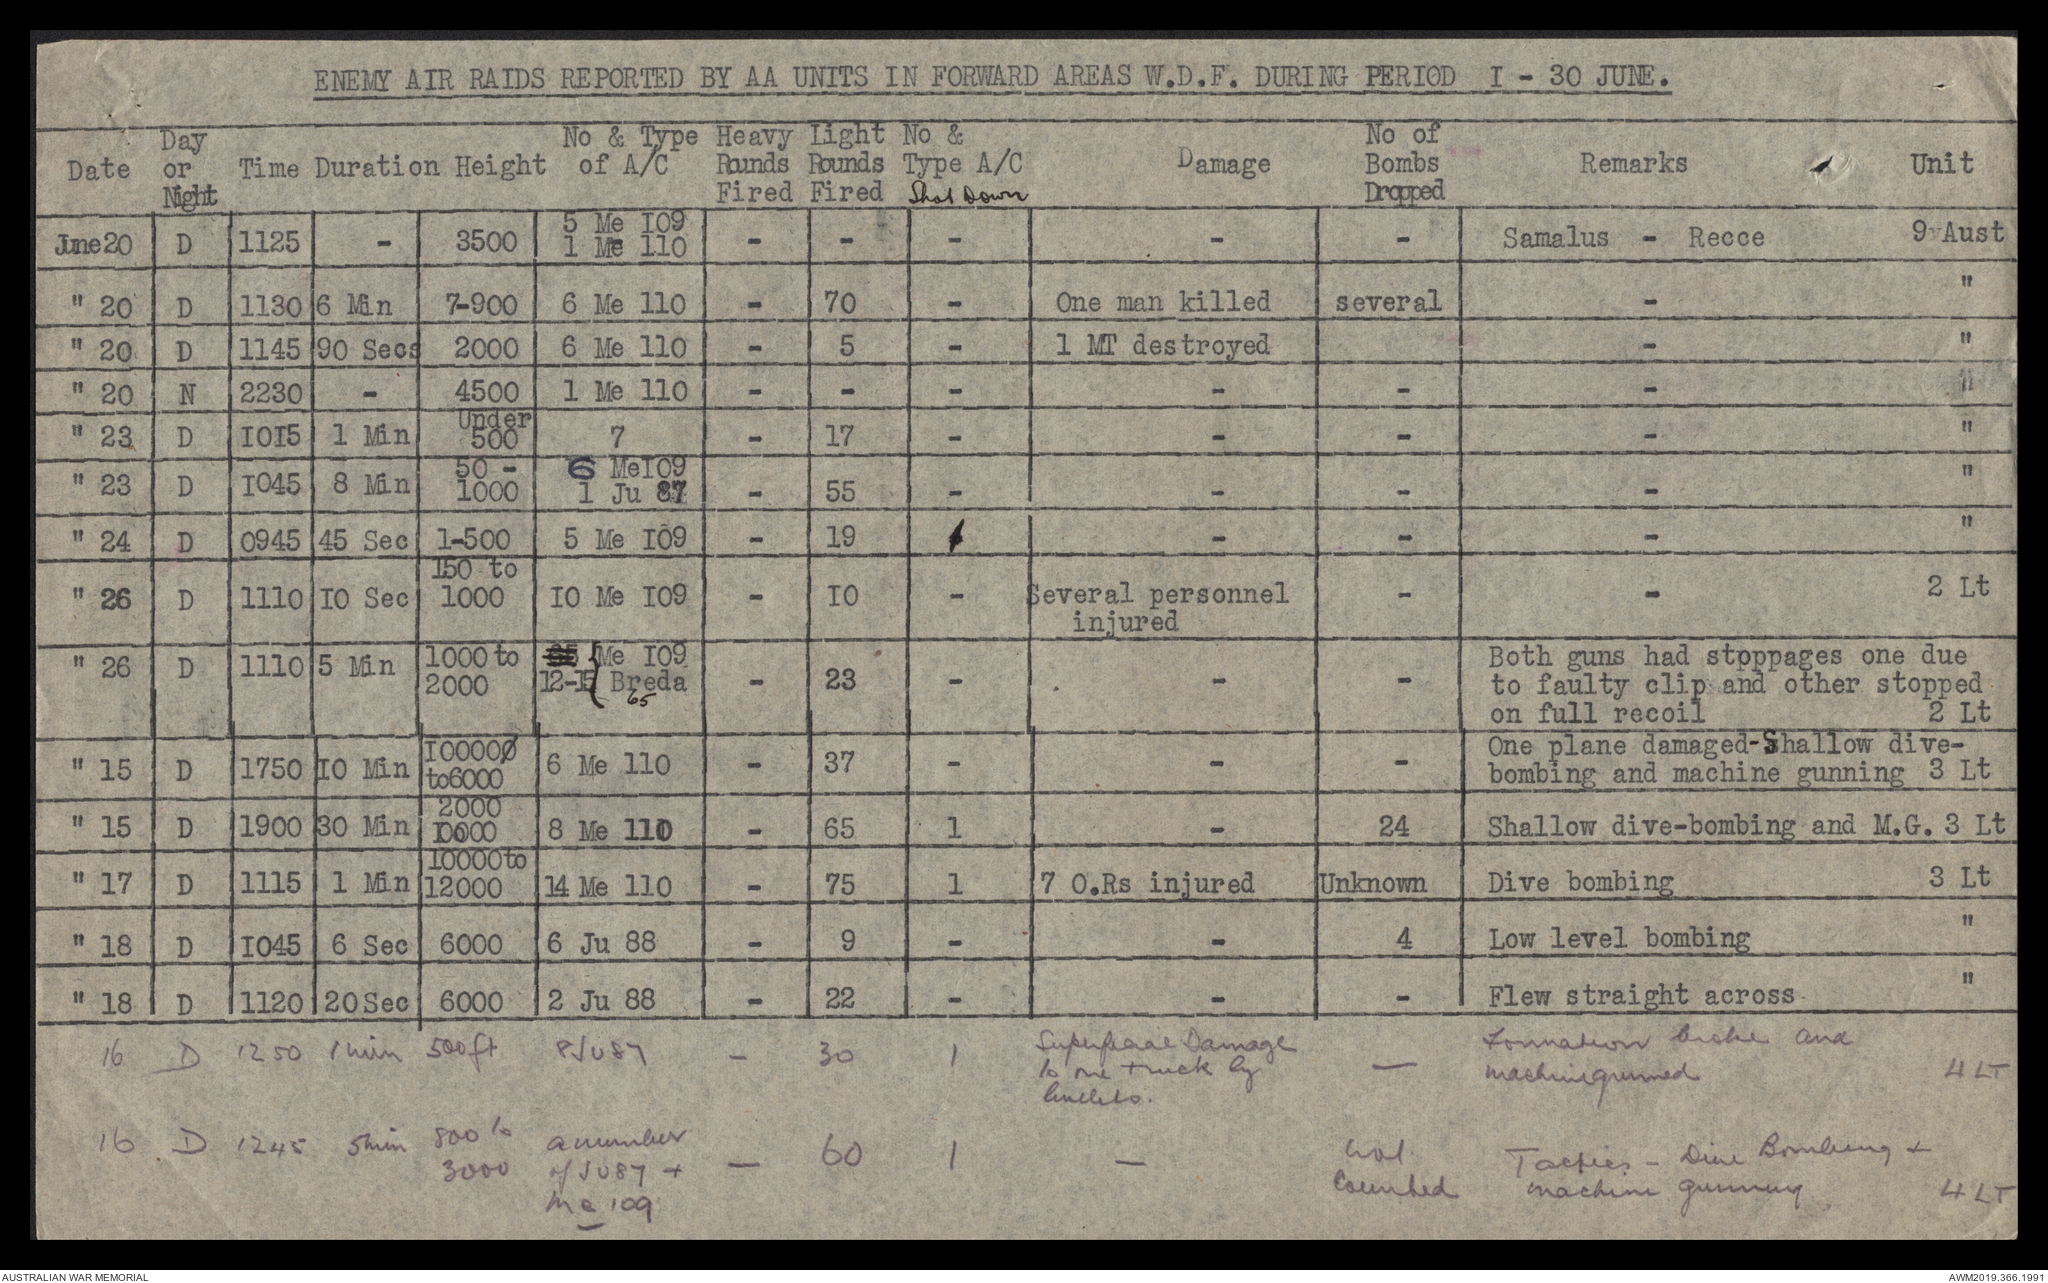 ENEMY AIR RAIDS REPORTED BY AA UNITS IN FORWARD AREAS W.D.F. DURING PERIOD I - 30 JUNE.
Date Day or Night Time Duration Height No & Type of A/C Heavy Rounds Fired Light Rounds Fired No & Type A/C Shot Down Damage No of Bombs Dropped Remarks Unit
June 20 D 1125 - 3500 5 Me I09 1 Me 110 - - - - - Samalus - Recce 9 Aust
" 20 D 1130 6 Min 7-900 6 Me 110 - 70 - One man killed several - "
" 20 D 1145 90 Secs 2000 6 Me 110 - 5 - 1 MT destroyed - "
" 20 N 2230 - 4500 1 Me 110 - - - - - - "
" 23 D IOI5 1 Min Under 500 7 - 17 - - - - "
" 23 D I045 8 Min 50 - 1000 6 MeI09 1 Ju 87 - 55 - - - - "
" 24 D 0945 45 Sec 1-500 5 Me I09 - 19 - - - "
" 26 D 1110 IO Sec 150 to 1000 IO Me I09 - IO - Several personnel injured - - 2 Lt
" 26 D 1110 5 Min 1000 to 2000 12-15 { Me I09 Breda 65 - 23 - - - Both guns had stoppages one due to faulty clip and other stopped on full recoil 2 Lt
" 15 D 1750 IO Min I0000 to6000 6 Me 110 - 37 - - - One plane damaged-Shallow dive-bombing and machine gunning 3 Lt
" 15 D 1900 30 Min 2000 to I0000 8 Me 110 - 65 1 - 24 Shallow dive-bombing and M.G. 3 Lt
" 17 D 1115 1 Min I0000 to 12000 14 Me 110 - 75 1 7 O.Rs injured Unknown Dive bombing 3 Lt
" 18 D I045 6 Sec 6000 6 Ju 88 - 9 - - 4 Low level bombing "
" 18 D 1120 20 Sec 6000 2 Ju 88 - 22 - - - Flew straight across "
16 D 1250 1 min 500 ft 8 JU87 - 30 1 Superficial Damage to one truck by bullets. - Formation broke and machinegunned 4 LT
16 D 1245 5 min 800 to 3000 a number of JU87 + Me 109 - 60 1 - Not Counted Tactics - Dive Bombing + machine gunning 4 LT
AUSTRALIAN WAR MEMORIAL
AWM2019.366.1991